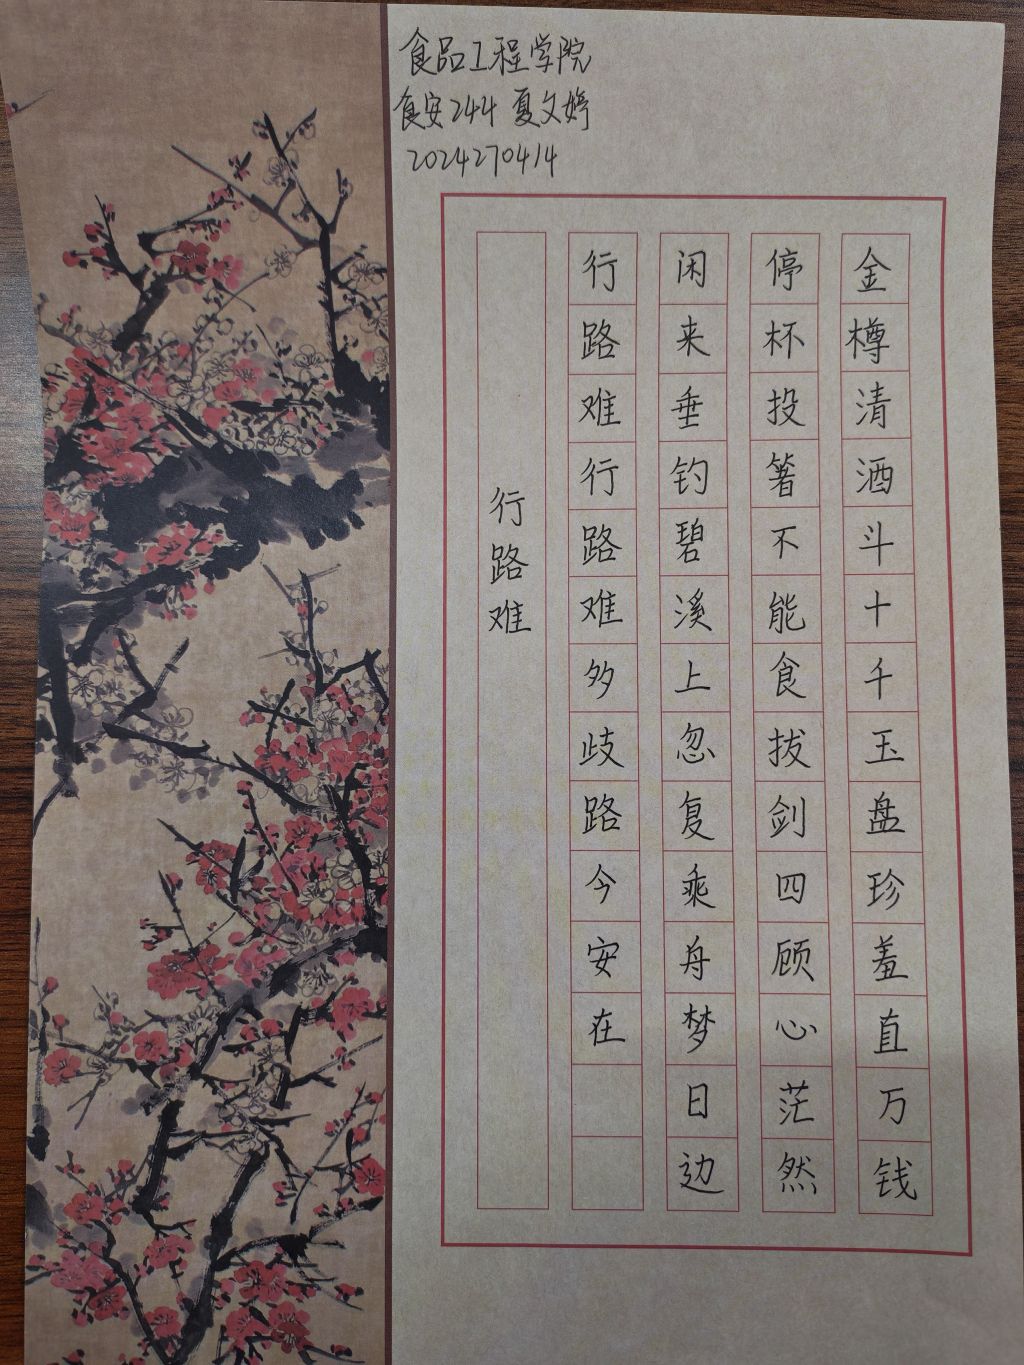 食品工程学院
食安244 夏文婷
2024270414
金樽清酒斗十千玉盘珍羞直万钱
停杯投箸不能食拔剑四顾心茫然
闲来垂钓碧溪上忽复乘舟梦日边
行路难行路难多歧路今安在
行路难